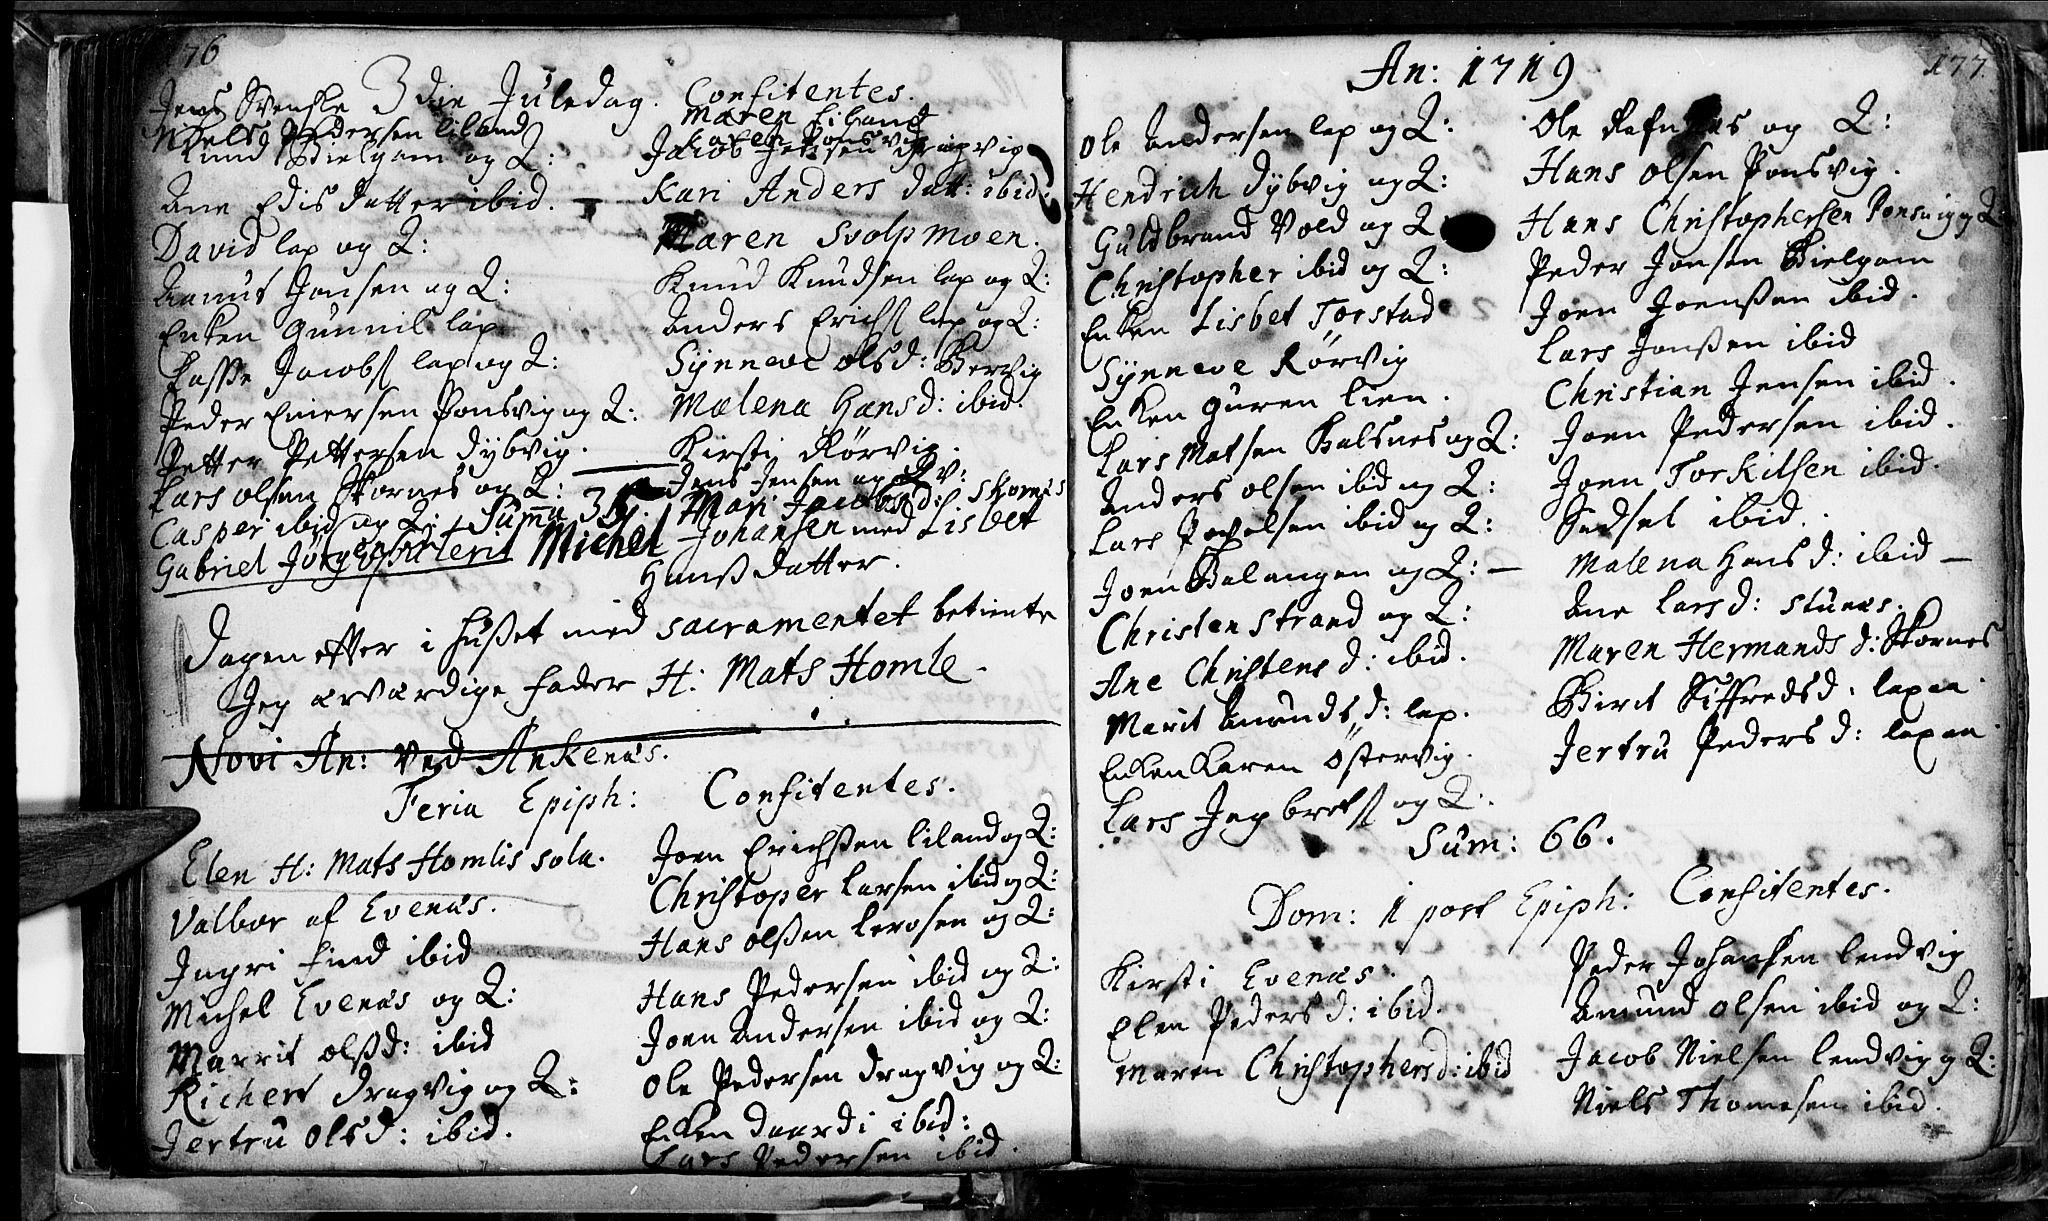 176
3die Juledag. Confitentes.
Jens Svenske
Niels Pedersen Liland
Knud Bielgam og Q:
Ane Edisdatter ibid.
David lap og Q:
Aanut Jonsen og Q:
Enken Gunnil lap
Lasse Jacobs lap og Q:
Peder Einersen Ponsvig og Q:
Petter Pettersen Dybvig.
Lars Olsen Skornes og Q:
Casper ibid og Q: Summa 35.
Gabriel Jørgens
Maren Liland
Karen Ponsvig
Jacob Jensen Dragvig
Kari Anders dat: ibid.
Maren Svolpmoen.
Knud Knudsen lap og Q:
Anders Erichs lap og Q:
Synneve Olsd: Bervig
Malena Hansd: ibid.
Kirsti Rørvig.
Jens Jensen og Qv:
Mari Jacobsd: Skornes
Copulerit Michel Johansen med Lisbet
Hansdatter.
Dagen effter i Huset med sacramentet betiente
Jeg ærværdige fader H: Mats Homle.
Novi An: ved Ankenæs.
Feria Epiph: Confitentes.
Elen H: Mats Homlis sola.
Valbor af Evenæs.
Ingri Find ibid
Michel Evenæs og Q:
Marrit Olsd: ibid
Richert Dragvig og Q:
Jertru Olsd: ibid.
Joen Erichsen Liland og Q:
Christoper Larsen ibid og Q:
Hans Olsen Lerosen og Q:
Hans Pedersen ibid og Q:
Joen Andersen ibid og Q:
Ole Pedersen Dragvig og Q:
Enken Daardi ibid:
Lars Pedersen ibid.
177
An: 1719
Ole Andersen lap og Q:
Hendrich Dybvig og Q:
Guldbrand Vold og Q:
Christopher ibid og Q:
Enken Lisbet Torstad
Synneve Rørvig
Enken Guren Lien.
Lars Matsen Balsnes og Q:
Anders Olsen ibid og Q:
Lars Povelsen ibid og Q:
Joen Balangen og Q:
Christen Strand og Q:
Ane Christensd: ibid.
Marit Amundsd: lap.
Enken Karen Østervig.
Lars Ingbrets og Q:
Ole Refnæs og Q:
Hans Olsen Ponsvig.
Hans Christophersen Ponsvig og Q
Peder Jonsen Bielgam
Joen Joensen ibid.
Lars Jonsen ibid
Christian Jensen ibid.
Joen Pedersen ibid.
Joen Torkilsen ibid.
Sedsel ibid.
Malena Hansd: ibid
Ane Larsd: Stunes.
Maren Hermandsd: Skornes
Birit Siffredsd: lapaa
Jertru Pedersd: lapaa
Sum: 66.
Dom: 1 post Epiph: Confitentes.
Kirsti Evenæs.
Elen Pedersd: ibid.
Maren Christophersd: ibid
Peder Johansen Lendvig
Amund Olsen ibid og Q:
Jacob Nielsen Lendvig og Q:
Niels Thomesen ibid.